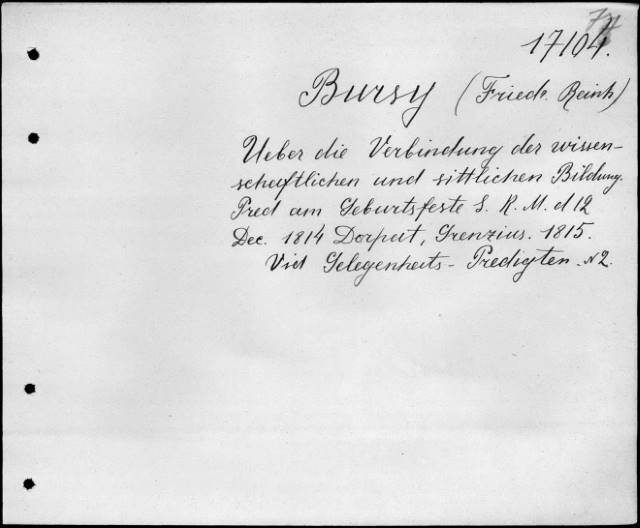 17104.
Bursy (Friedr. Reinh)
Ueber die Verbindung der wissen-
schaftlichen und sittlichen Bildung.
Pred am Geburtsfeste S. K. M. d 12
Dec. 1814 Dorpat, Grenzius. 1815.
Vid Gelegenheits-Predigten. N2.